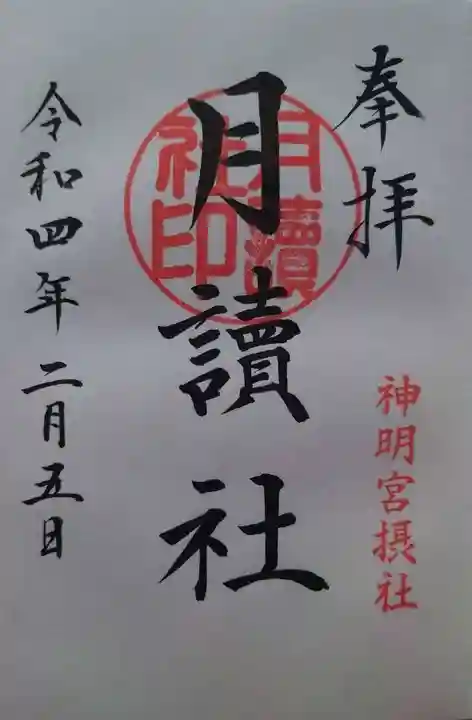 奉拝
神明宮摂社
月讀社
月讀
社印
令和四年二月五日